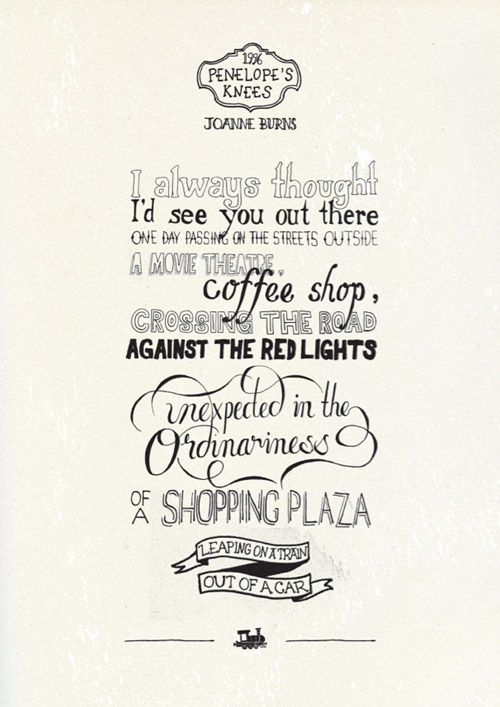 1996
PENELOPE'S
KNEES
JOANNE BURNS
I always thought
I'd see you out there
ONE DAY PASSING ON THE STREETS OUTSIDE
A MOVIE THEATRE,
coffee shop,
CROSSING THE ROAD
AGAINST THE RED LIGHTS
unexpected in the
Ordinariness
OF
A SHOPPING PLAZA
LEAPING ON A TRAIN
OUT OF A CAR